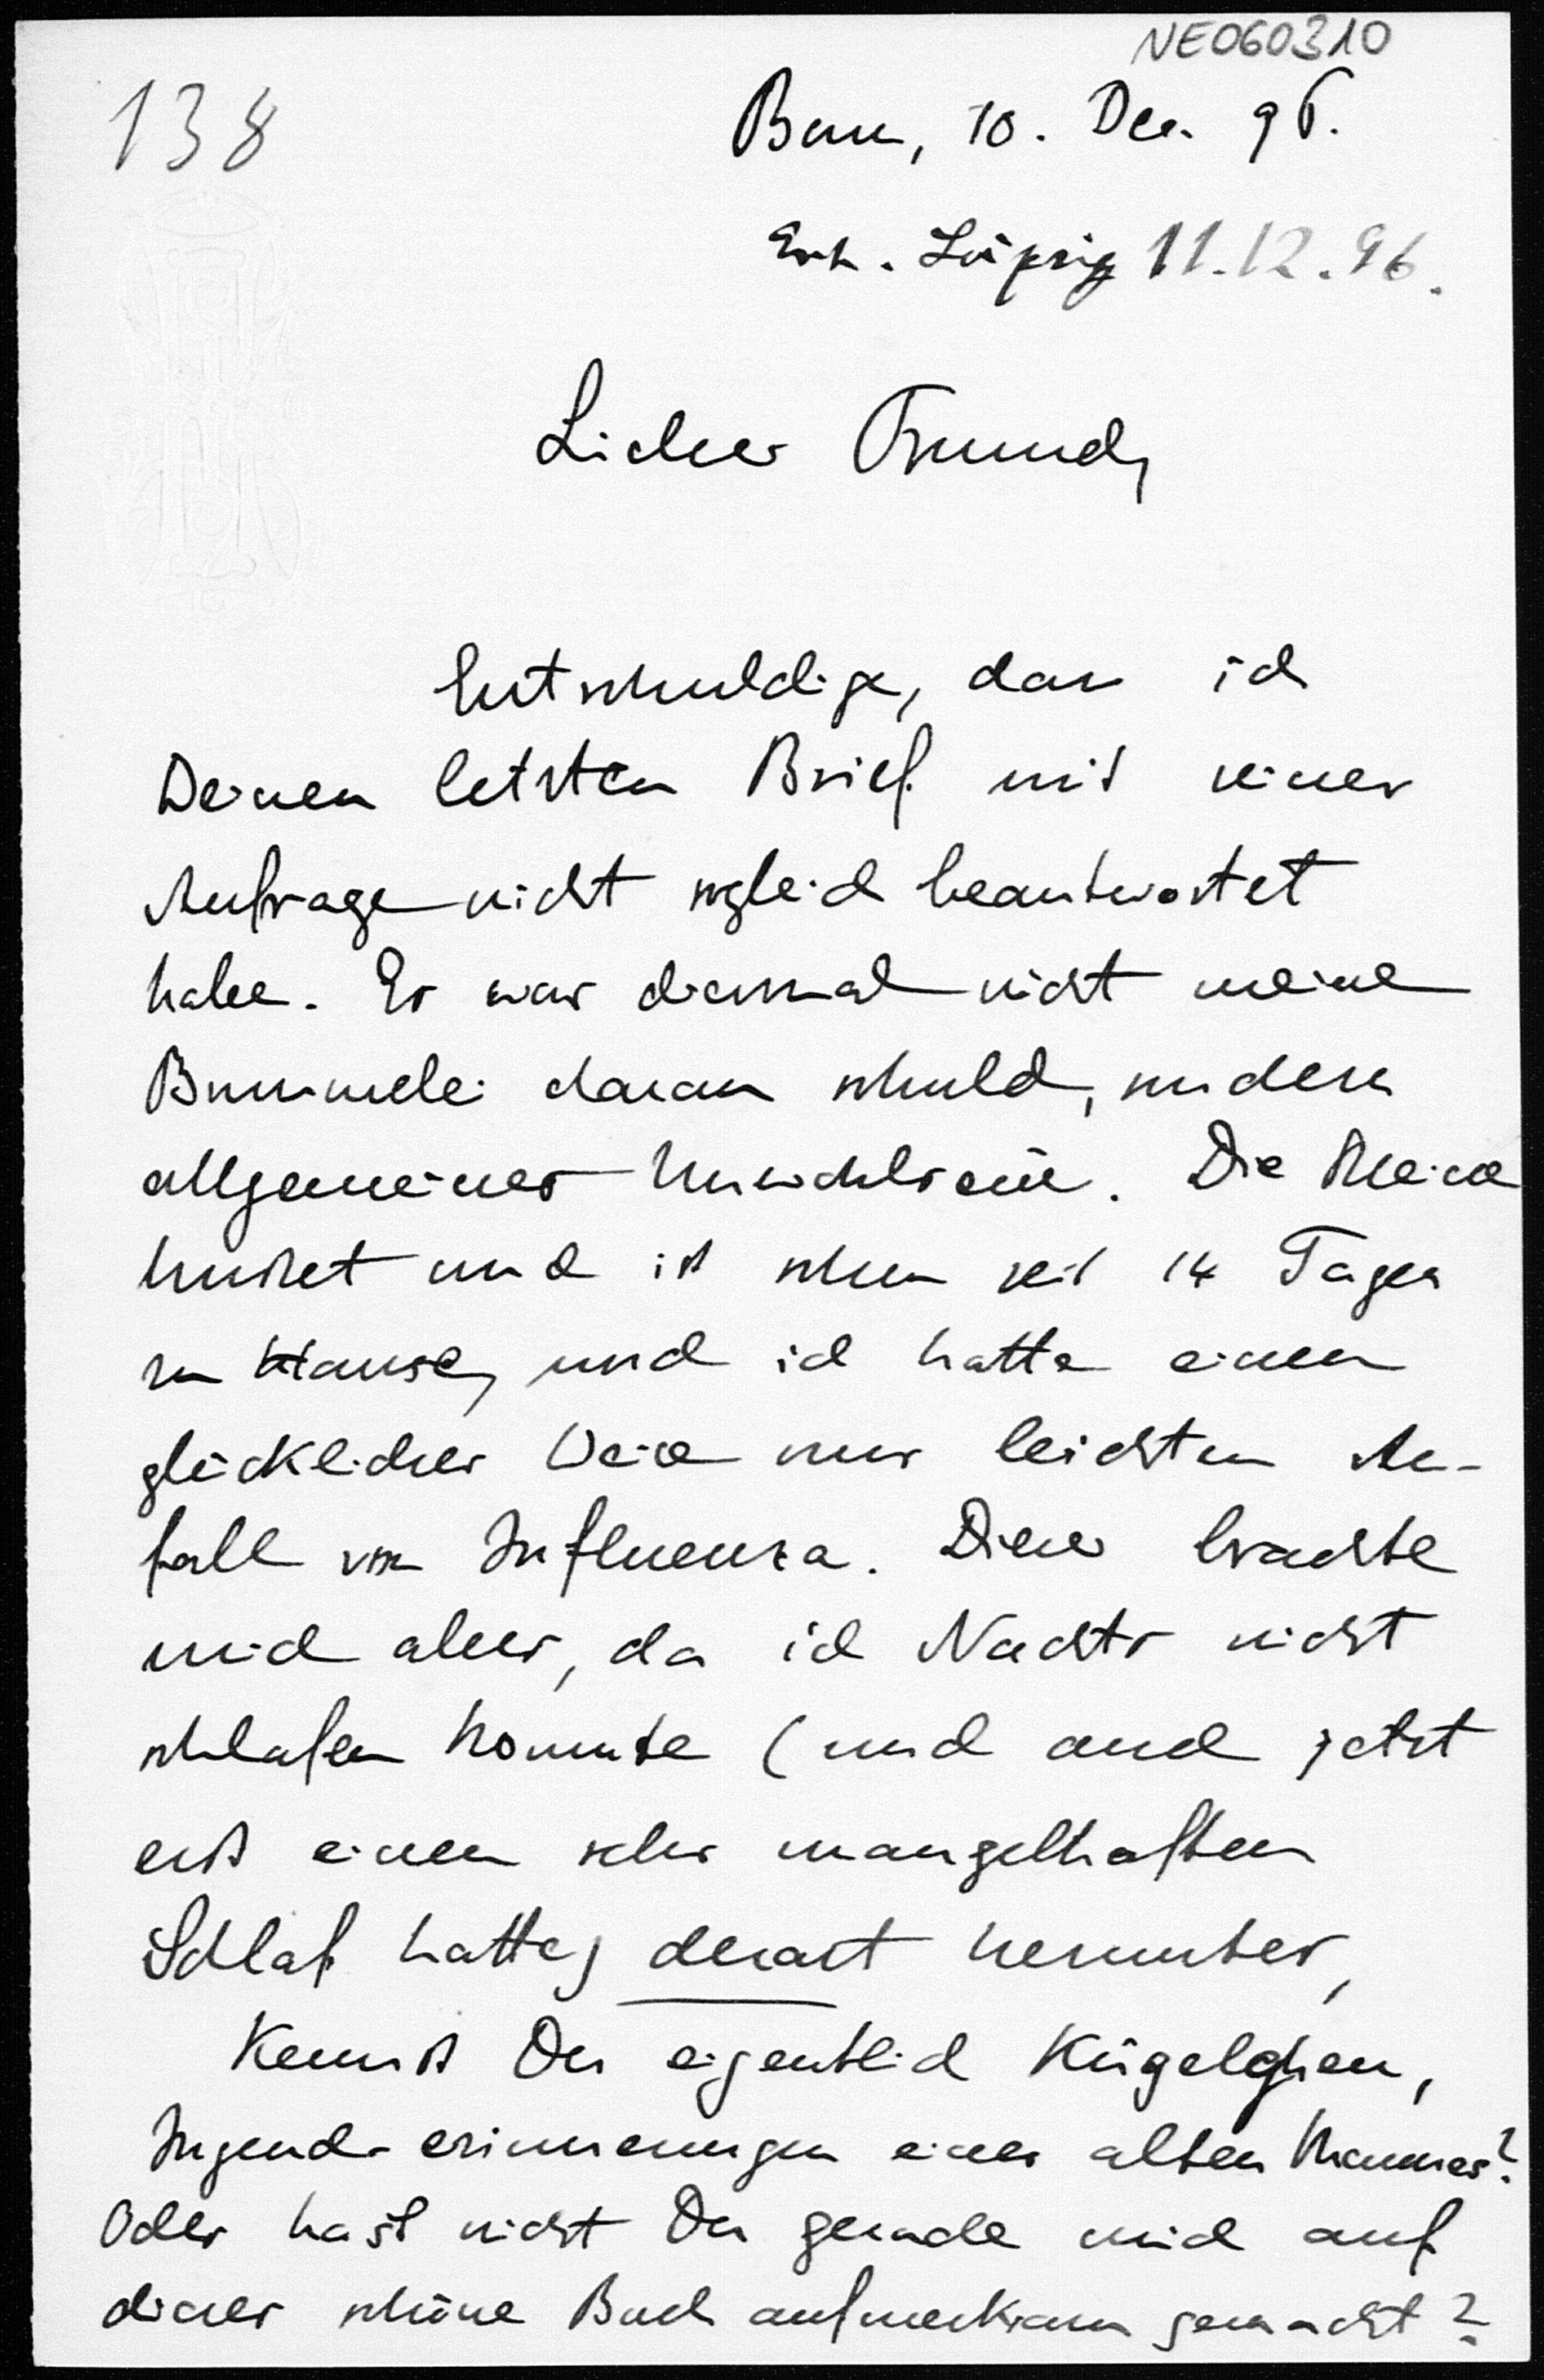 NE060310
138
Bern, 10. Dec. 96.
Erh. Leipzig 11.12.96.
Lieber Freund,
Entschuldige, dass ich
Deinen letzten Brief mit seiner
Anfrage nicht sogleich beantwortet
habe. Es war diesmal nicht meine
Bummelei daran schuld, sondern
allgemeines Unwohlsein. Die Kleine
hustet und ist schon seit 14 Tagen
zu Hause, und ich hatte einen
glücklicher Weise nur leichten An-
fall von Influenza. Dieser brachte
mich aber, da ich Nachts nicht
schlafen konnte (und auch jetzt
erst einen sehr mangelhaften
Schlaf hatte) derart herunter,
Kennst Du eigentlich Kügelghen,
Jugend-erinnerungen eines alten Mannes?
Oder hast nicht Du gerade mich auf
dieses schöne Buch aufmerksam gemacht?